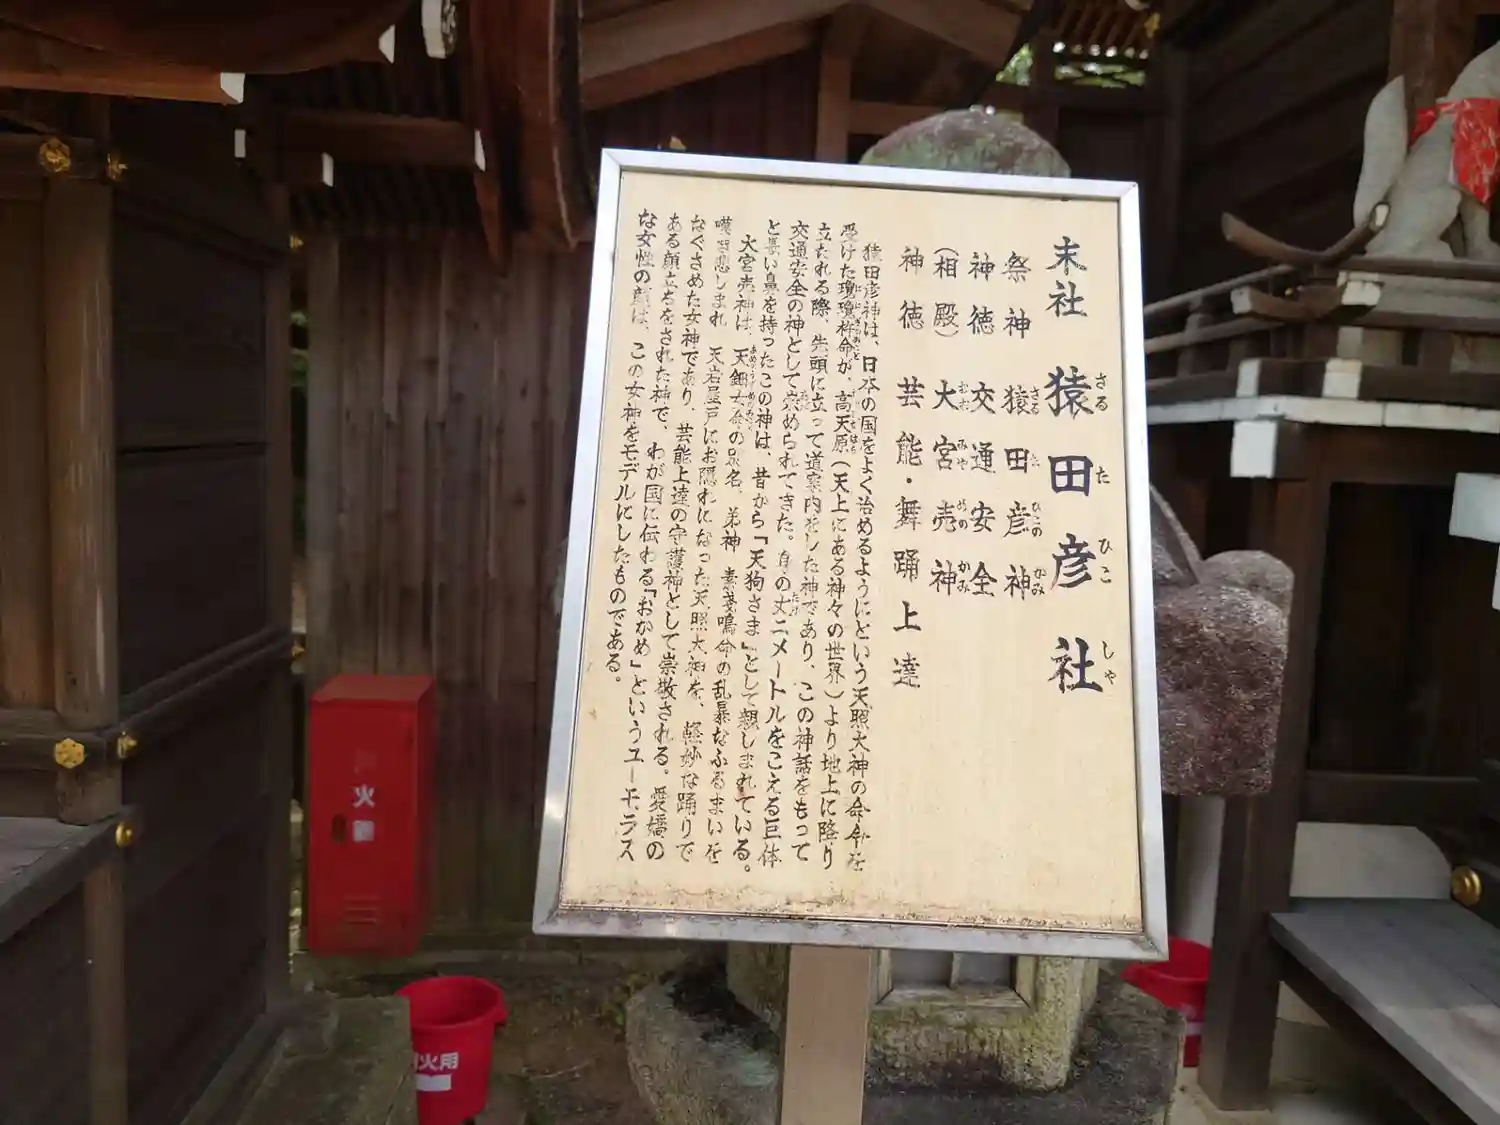 末社 猿田彦社
さる た ひこ しゃ
祭神 猿田彦神
さる た ひこの かみ
神徳 交通安全
(相殿) 大宮売神
おお みや めの かみ
神徳 芸能・舞踊上達
猿田彦神は、日本の国をよく治めるようにという天照大神の命令を
受けた瓊瓊杵命が、高天原(天上にある神々の世界)より地上に降り
立たれる際 先頭に立って道案内をした神であり、この神話をもって
交通安全の神として崇められてきた。身の丈二メートルをこえる巨体
と長い鼻を持ったこの神は、昔から「天狗さま」として親しまれている。
大宮売神は、天鈿女命の別名、弟神 素戔嗚命の乱暴なふるまいを
嘆き悲しまれ 天岩屋戸にお隠れになった天照大神を、軽妙な踊りで
なぐさめた女神であり、芸能上達の守護神として崇敬される。愛嬌の
ある顔立ちをされた神で、わが国に伝わる「おかめ」というユーモラス
な女性の顔は、この女神をモデルにしたものである。
火
火用